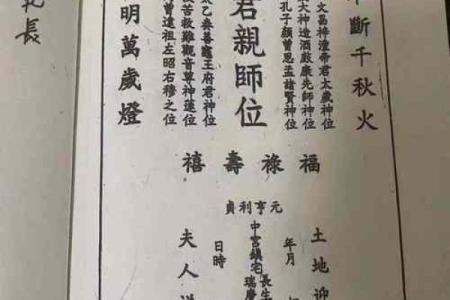 斷千秋火
文昌梓潼帝君太歲神位
大神造酒康先師神位
孔子顏曾思孟諸賢神位
君親師位
太乙奏善竈王府君神位
苦救難觀音尊神蓮位
曾遠祖左昭右穆之位
明萬歲燈
福祿壽禧
元亨利貞
土地迎
年月
長生
中宮鎮宅
瑞慶
日時
夫人送
長